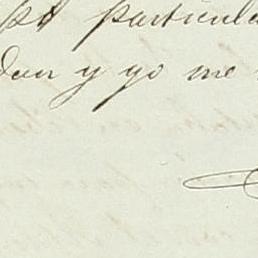 particula
dan y yo me